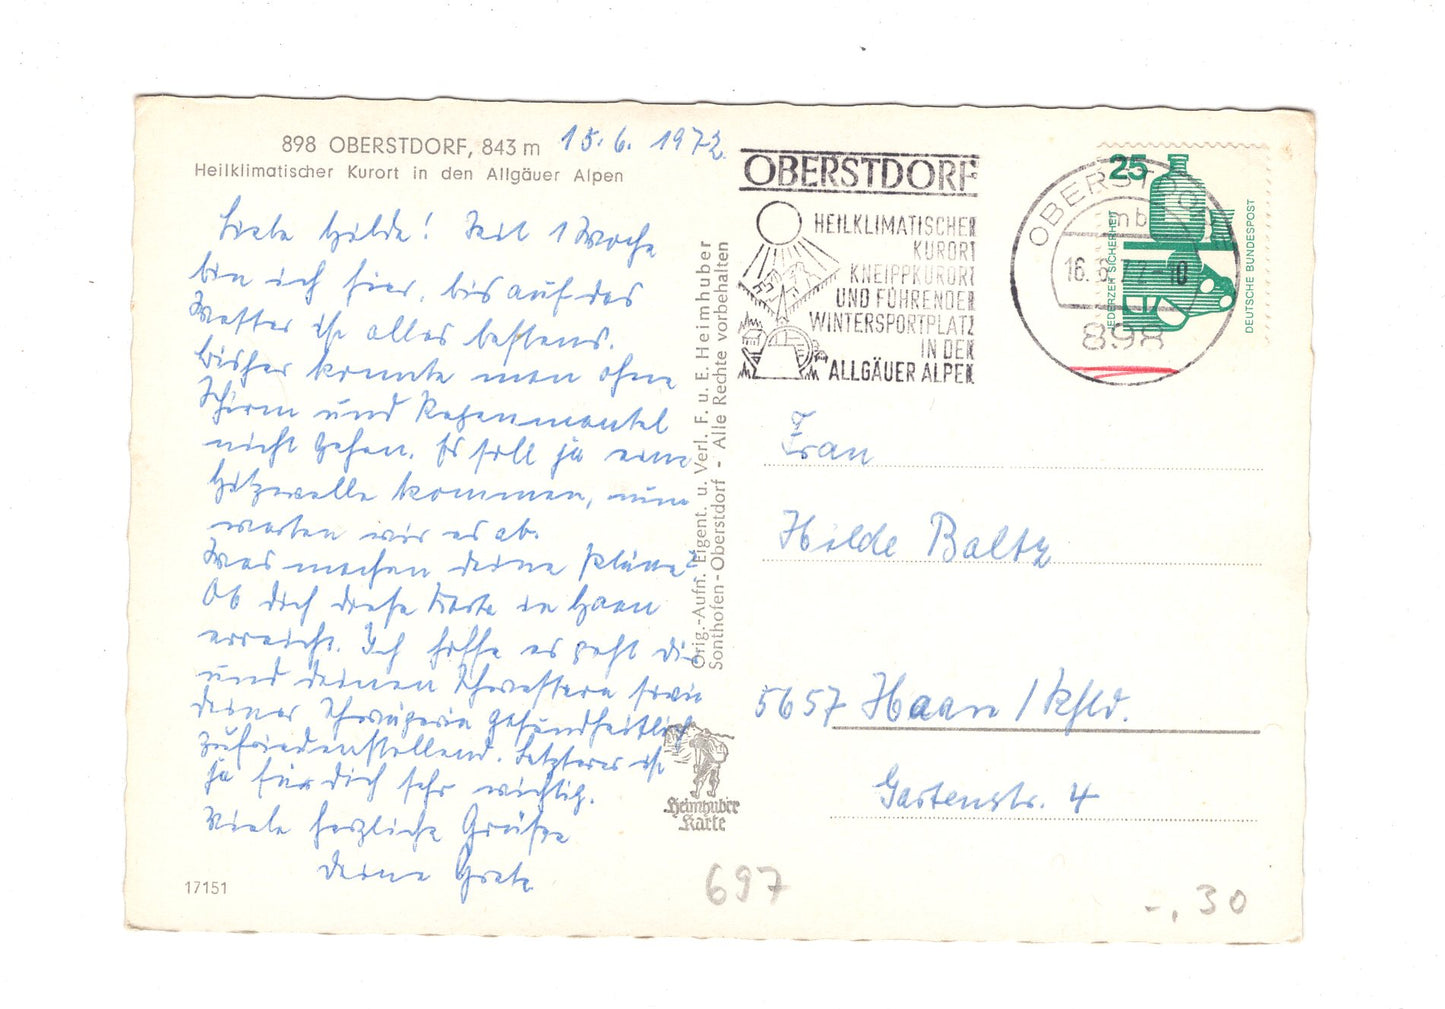 898 OBERSTDORF, 843 m 15.6.1972.
Heilklimatischer Kurort in den Allgäuer Alpen
Liebe Hilde! Seit 1 Woche
bin ich hier, bis auf das
Wetter ist alles bestens.
Bisher konnte man ohne
Schirm und Regenmantel
nicht gehen. Es soll ja eine
Hitzewelle kommen, nun
warten wir es ab.
Was machen deine Pläne?
Ob dich diese Karte in Haan
erreicht. Ich hoffe es geht dir
und deinen Schwestern sowie
deiner Schwägerin gesundheitlich
zufriedenstellend. Letzteres ist
ja für dich sehr wichtig.
Viele herzliche Grüße
deine Grete
17151
Orig.-Aufn. Eigent. u. Verl. F. u. E. Heimhuber
Sonthofen-Oberstdorf - Alle Rechte vorbehalten
Heimhuber
Karte
OBERSTDORF
HEILKLIMATISCHER
KURORT
KNEIPPKURORT
UND FÜHRENDER
WINTERSPORTPLATZ
IN DEN
ALLGÄUER ALPEN
OBERSTDORF
mb
16.6.72-10
898
25
JEDERZEIT SICHERHEIT
DEUTSCHE BUNDESPOST
Frau
Hilde Baltz
5657 Haan / Rhld.
Gartenstr. 4
697
-.30